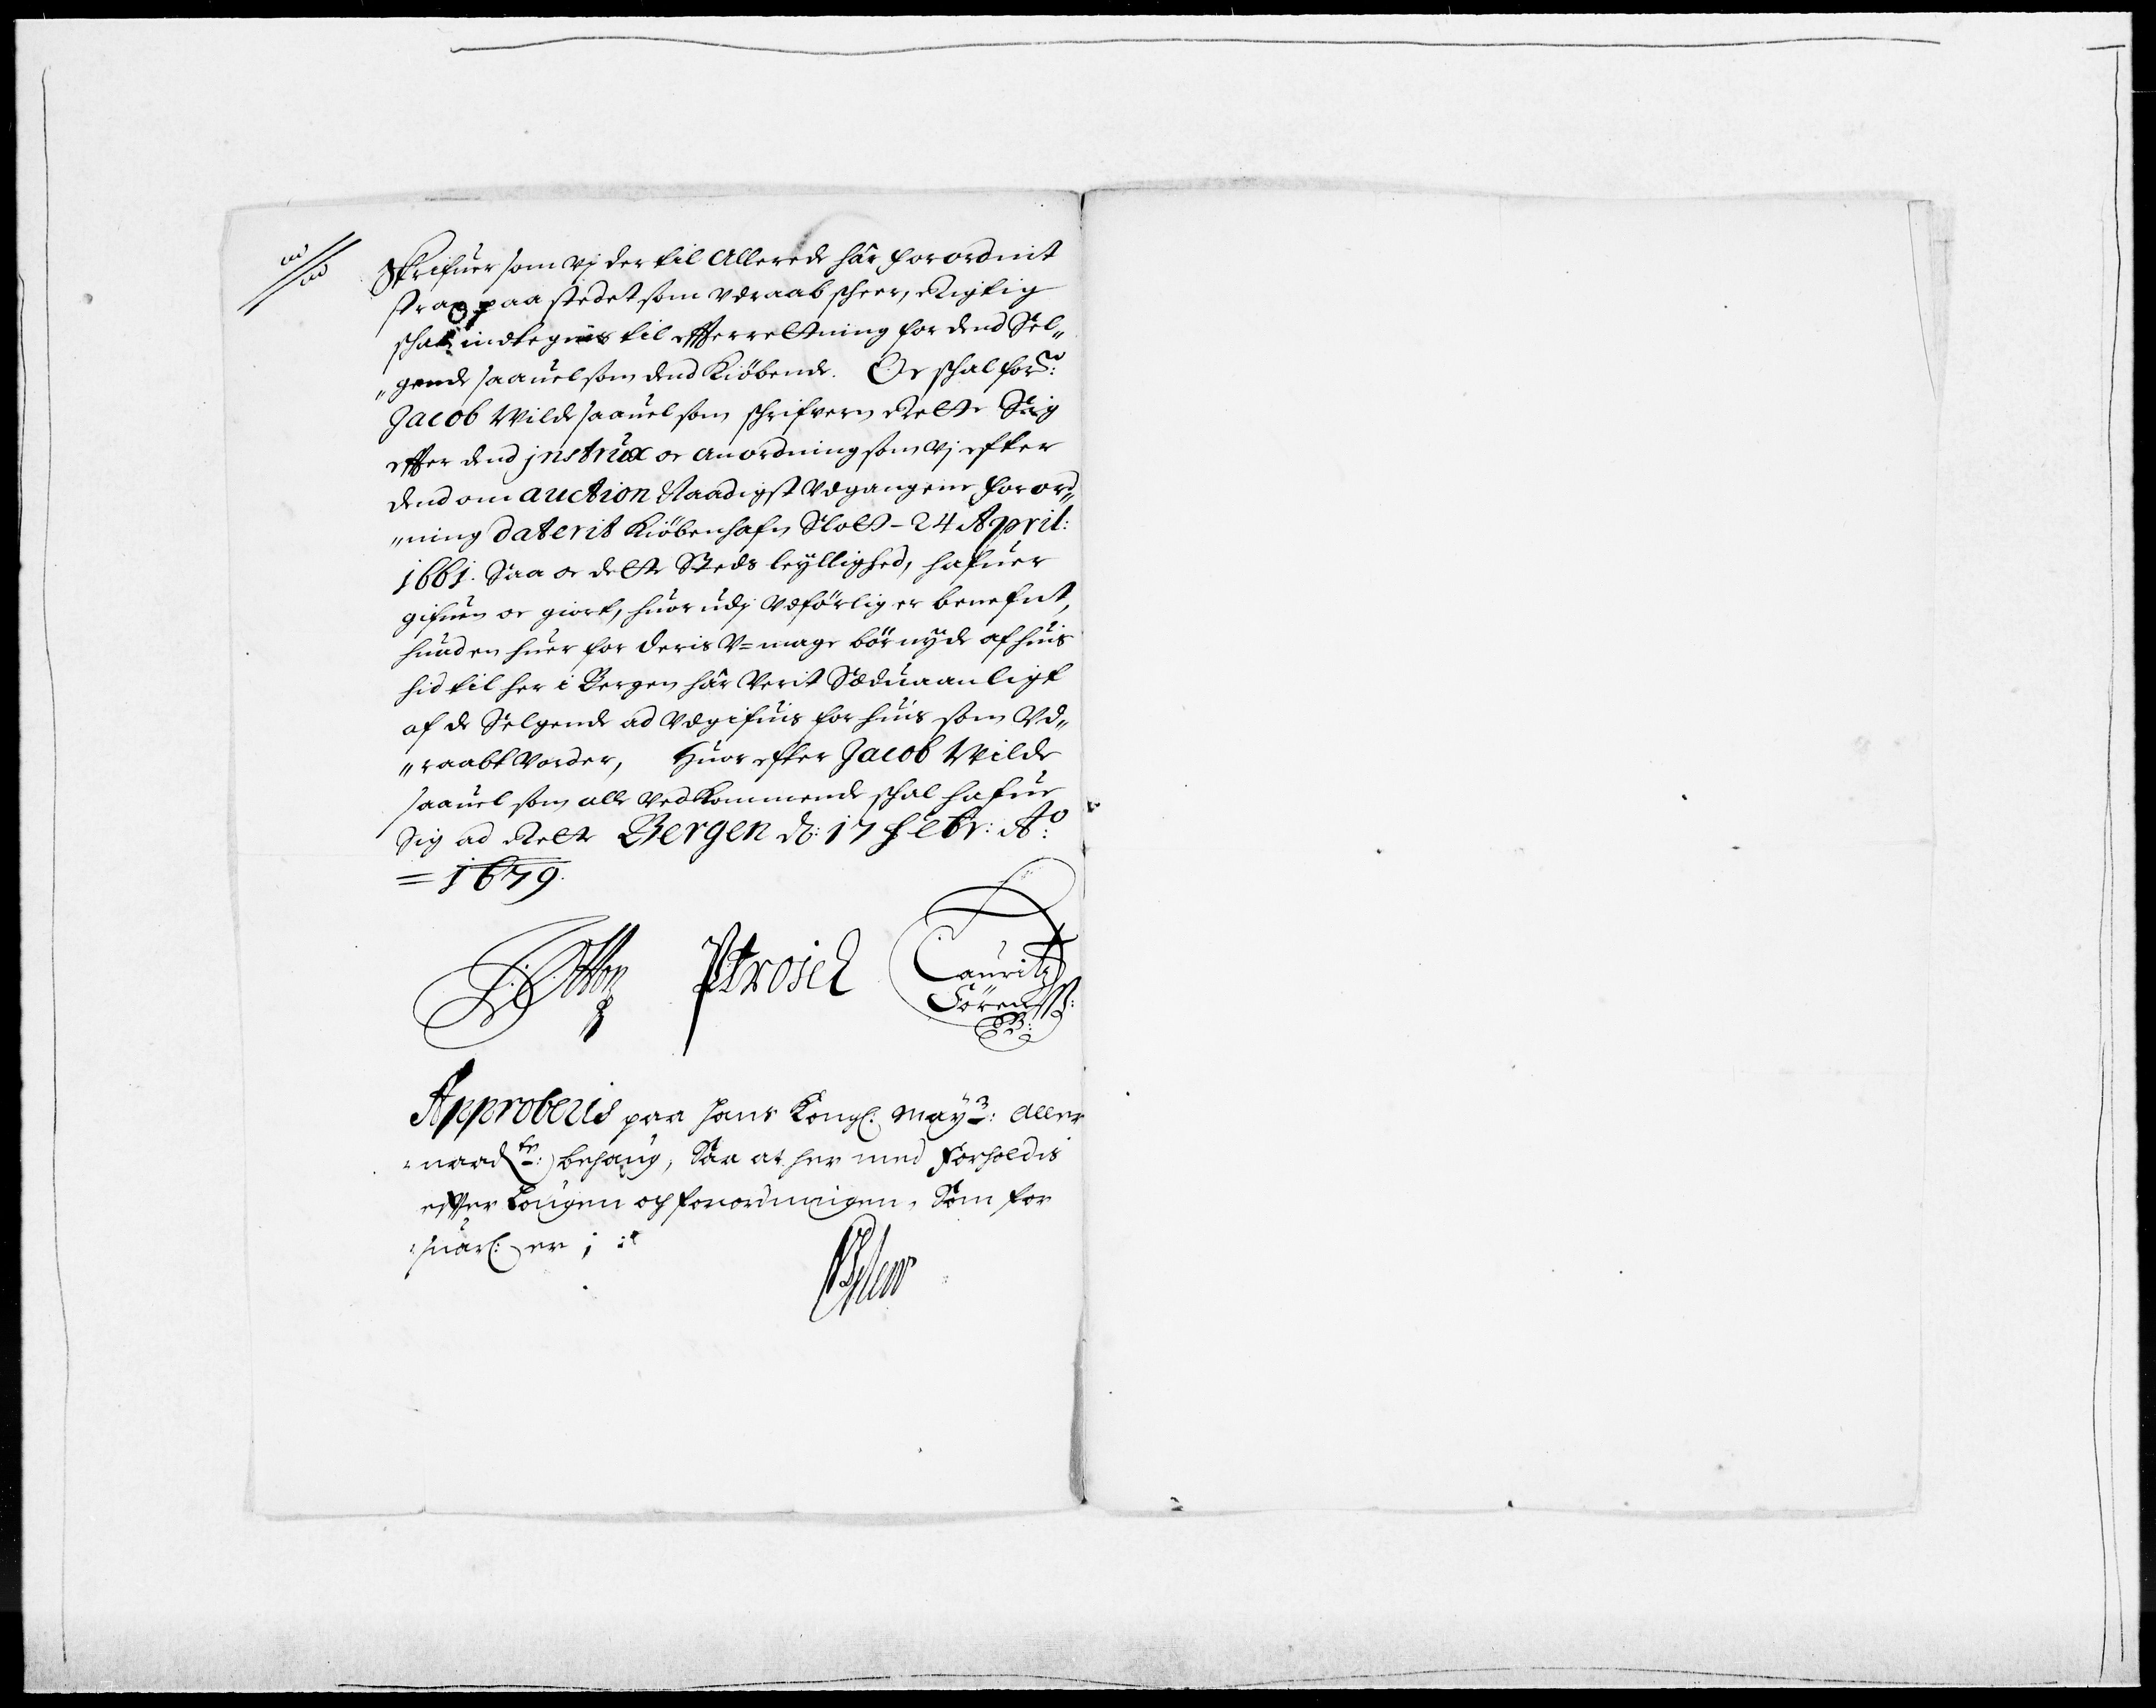 Skrifuer som vj der til Allerede här forordnit
strax paa stedet som vdraab scheer, Rigtig
schal indtegnis til effterrettning for dend Sel„
„gende saauel som dend Kiöbende. Oc schal forne:
Jacob Wilde saauel som schrifvern Rette Sig
effter dend jnstrux oc anordning som vj efter
dend om auction Naadigst Vdgangene forord„
„ning daterit Kiöbenhafn Slott - 24 April:
1661. Saa oc dette Steds leyllighed, hafuer
gifuen oc giort, huor udj Vdförlig er benefnt,
huad en huer for deris V=mage bör nyde af huis
hid til her i Bergen här Verit Sæduaanligt
af de Selgende ad Vdgifuis for huis som Vd„
„raabt Vorder, Huorefter Jacob Wilde
saauel som alle Vedkommende schal hafue
Sig ad Rette Bergen d: 17 Febr: Ao:
= 1679.
Lauritz
Sörens:
B:
Approberis paa Hans Kongl: May3: Aller
naad behaug, Saa at her med forholdis
effter Lougen och forordningen, Som for
suarl: er ;